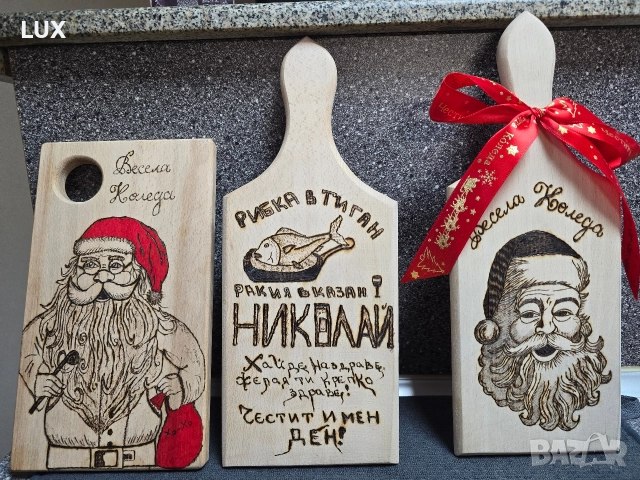 LUX
Весела
Коледа
Хо Хо
РИБКА В ТИГАН
РАКИЯ В КАЗАН
НИКОЛАЙ
Хайде, наздраве,
желая ти крепко
здраве!
Честит имен
ДЕН!
Коледа
Весела Коледа
BAZAR